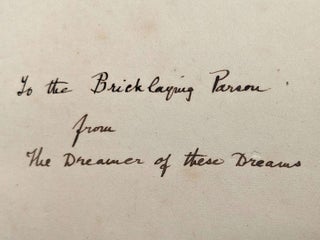 To the Bricklaying Parson
from
The Dreamer of these Dreams